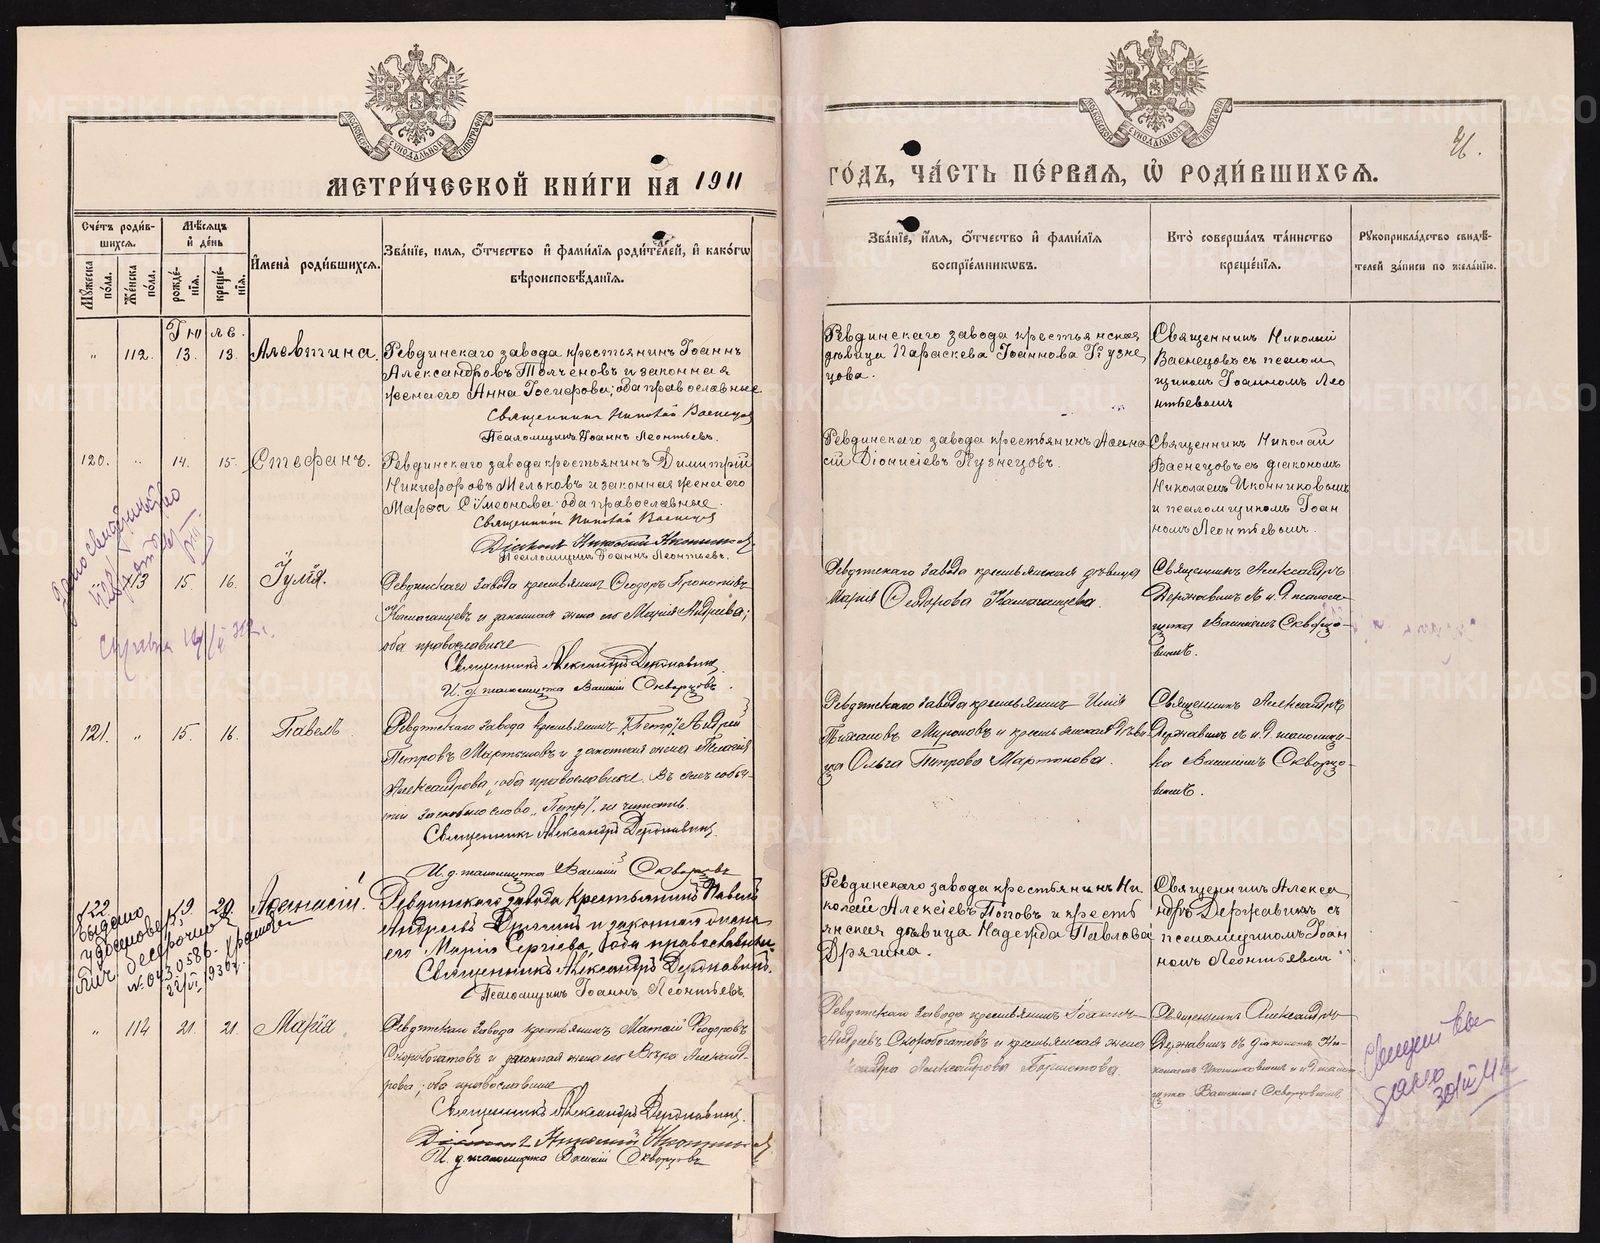 МЕТРИ́ЧЕСКОЙ КНИ́ГИ НА 1911
ГО́ДЪ, ЧА́СТЬ ПЕ́РВАЯ, Ѽ РОДИ́ВШИХСЯ.
Сче́тъ роди́в-
шихся.
Мꙋ́жеска по́ла.
Же́нска по́ла.
Мѣ́сяцъ
и де́нь
рожде́-
нїя.
креще́-
нїя.
И҆мена̀ роди́вшихся.
Зва́нїе, имя, о҆́тчество и҆ фами́лїя роди́телей, и҆ како́гѡ
вѣроисповѣ́данїя.
Зва́нїе, и҆́мя, о҆́тчество и҆ фами́лїя
воспрїе́мникѡвъ.
Кто̀ соверша́лъ та́инство
креще́нїя.
Рꙋкоприкла́дство свидѣ́-
телей за́писи по жела́нїю.
Іюле.
" 112. 13. 13. Алевтина.
Ревдинскаго завода крестьянинъ Іоаннъ
Александровъ Толченовъ и законная
жена его Анна Іосифова; оба православные
Священникъ Николай Васнецовъ
Псаломщикъ Іоаннъ Леонтьевъ.
Ревдинскаго завода крестьянская
дѣвица Параскева Іоаннова Кузне
цова.
Священник Николай
Васнецовъ съ псалом
щикомъ Іоанномъ Лео
нтьевымъ
120. " 14. 15. Стефанъ.
Ревдинскаго завода крестьянинъ Димитрій
Никифоровъ Мельковъ и законная жена его
Марѳа Сѵмеонова; оба православные.
Священникъ Николай Васнецовъ
Діаконъ Николай Иконниковъ
Псаломщикъ Іоаннъ Леонтьевъ.
Ревдинскаго завода крестьянинъ Аѳана
сій Діонисіевъ Кузнецовъ.
Священникъ Николай
Васнецовъ съ діакономъ
Николаемъ Иконниковымъ
и псаломщикомъ Іоан
номъ Леонтьевымъ.
113 15 16. Іулія.
Ревдинскаго завода крестьянинъ Ѳеодоръ Прокопьевъ
и законная жена его Марія Андреева;
оба православные
Священникъ Александръ Державинъ
И. д. псаломщика Василій Скворцовъ.
Ревдинскаго завода крестьянская дѣвица
Марія Ѳеодорова
Священникъ Александръ
Державинъ съ и. д. псалом-
щика Василіемъ Скворцо-
вымъ.
121. " 15 16. Павелъ.
Ревдинскаго завода крестьянинъ /Петръ/ Андрей
Петровъ Мартыновъ и законная жена
Александрова; оба православные. Въ
слово „Петръ", не читать.
Священникъ Александръ Державинъ.
И. д. псаломщика Василій Скворцовъ
Ревдинскаго завода крестьянинъ Илія
Тихановъ Мироновъ и крестьянская дѣви
ца Ольга Петрова Мартынова.
Священникъ Александръ
Державинъ съ и. д. псаломщи-
ка Василіемъ Скворцо-
вымъ.
122 " 19 20. Аѳанасій.
Ревдинскаго завода крестьянинъ Павелъ
Андреевъ Дрягинъ и законная жена
его Марія Сергіева, оба православные.
Священникъ Александръ Державинъ.
Псаломщикъ Іоаннъ Леонтьевъ.
Ревдинскаго завода крестьянинъ Ни
колай Алексіевъ Поповъ и кресть
янская дѣвица Надежда Павлова
Дрягина.
Священникъ Алекса
ндръ Державинъ съ
псаломщикомъ Іоан
номъ Леонтьевымъ
" 114 21. 21. Марія
Ревдинскаго завода крестьянинъ Матѳей Ѳедоровъ
Скоробогатовъ и законная жена его Вѣра Александ-
рова; оба православные
Священникъ Александръ Державинъ.
Діаконъ Николай Иконниковъ
И. д. псаломщика Василій Скворцовъ
Ревдинскаго завода крестьянинъ Іоаннъ
Андреевъ Скоробогатовъ и крестьянская жена
Александрова
Священникъ Александръ
Державинъ съ діакономъ Ни-
колаемъ Иконниковымъ и и. д. псалом
щика Василіемъ Скворцовымъ.
выдано
бессрочный
№ 0430586.
METRIKI.GASO-URAL.RU